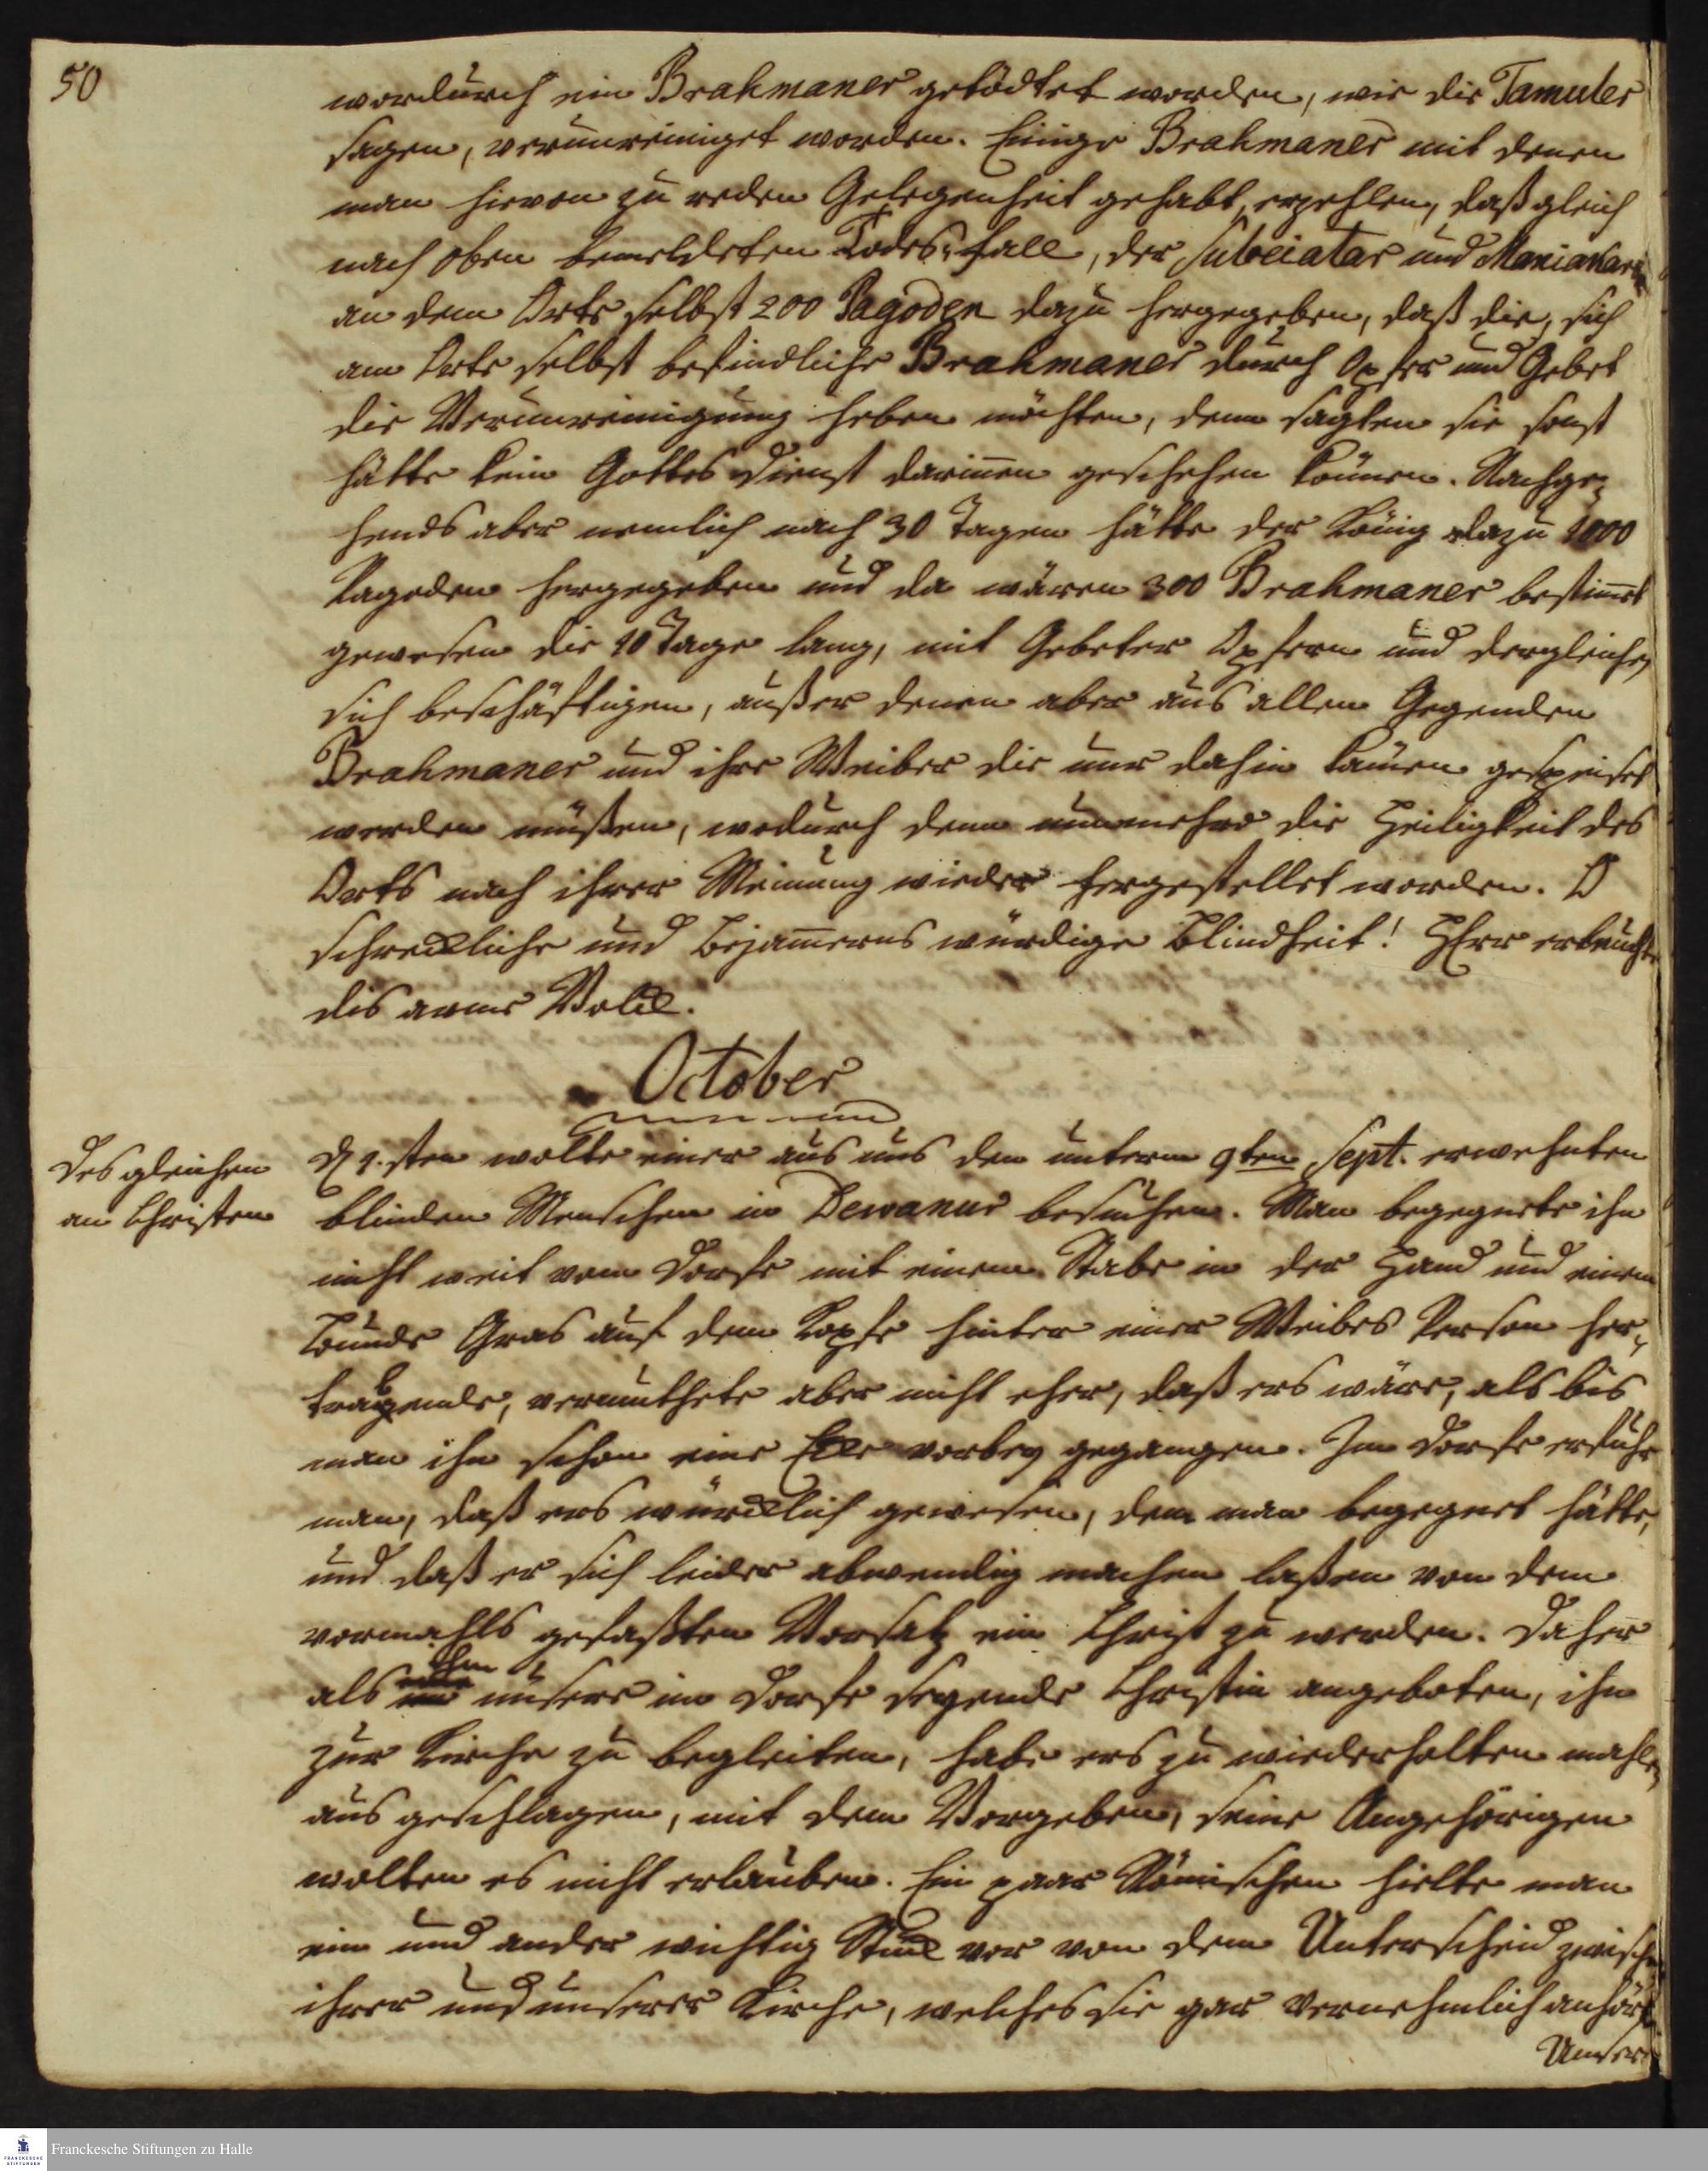 50
wordurch ein Brahmaner getödtet worden, wie die Tamuler
sagen, verunreiniget worden. Einige Brahmaner mit denen
man hievon zu reden Gelegenheit gehabt, erzehlen, daß gleich
nach oben bemeldeten Todes-fall, der Subeiatar und Maniakar
an dem Orte selbst 200 Pagoden dazu hergegeben, daß die, sich
am Orte selbst befindliche Brahmaner durch Opfer und Gebet
die Verunreinigung heben möchten, denn sagten sie sonst
hätte kein Gottes Dienst darinnen geschehen können. Nachge-
hends aber nemlich nach 30 Tagen hätte der König dazu 1000
Pagoden hergegeben und da wären 300 Brahmaner bestimt
gewesen die 10 Tage lang, mit Gebeter Opfern und dergleichen
sich beschäftigen, außer denen aber aus allen Gegenden
Brahmaner und ihre Weiber die nur dahin kämen gespeiset
werden müßen, wodurch denn nunmehro die Heiligkeit des
Orts nach ihrer Meinung wieder hergestellet worden. O
schreckliche und Bejamerns würdige Blindheit! HErr erleuchte
dis arme Volck.
October
Desgleichen
an Christen
D 1.sten wolte einer aus uns den unterm 9ten Sept. erwehnten
blinden Menschen in Dewanur besuchen. Man begegnete ihn
nicht weit vom Dorfe mit einem Stabe in der Hand und einem
Bunde Gras auf dem Kopfe hinter einer Weibes Person her-
trabende, vermuthete aber nicht eher, daß ers wäre, als bis
man ihn schon eine Elle vorbey gegangen. Im Dorfe erfuhr
man, daß ers würcklich gewesen, dem man begegnet hätte,
und daß er sich leider abwendig machen laßen von dem
vormahls gefaßten Vorsatz ein Christ zu werden. Daher
als ihm unsere im Dorfe seyende Christin angeboten, ihn
zur Kirche zu begleiten, habe ers zu wiederholten mahlen
aus geschlagen, mit dem Vorgeben, seine Angehörigen
wolten es nicht erlauben. Ein paar Römischen hielte man
ein und ander wichtig Stück vor von dem Unterscheid zwischen
ihrer und unserer Kirche, welches sie gar vernehmlich anhörten
Unser
Franckesche Stiftungen zu Halle
FRANCKESCHE
STIFTUNGEN